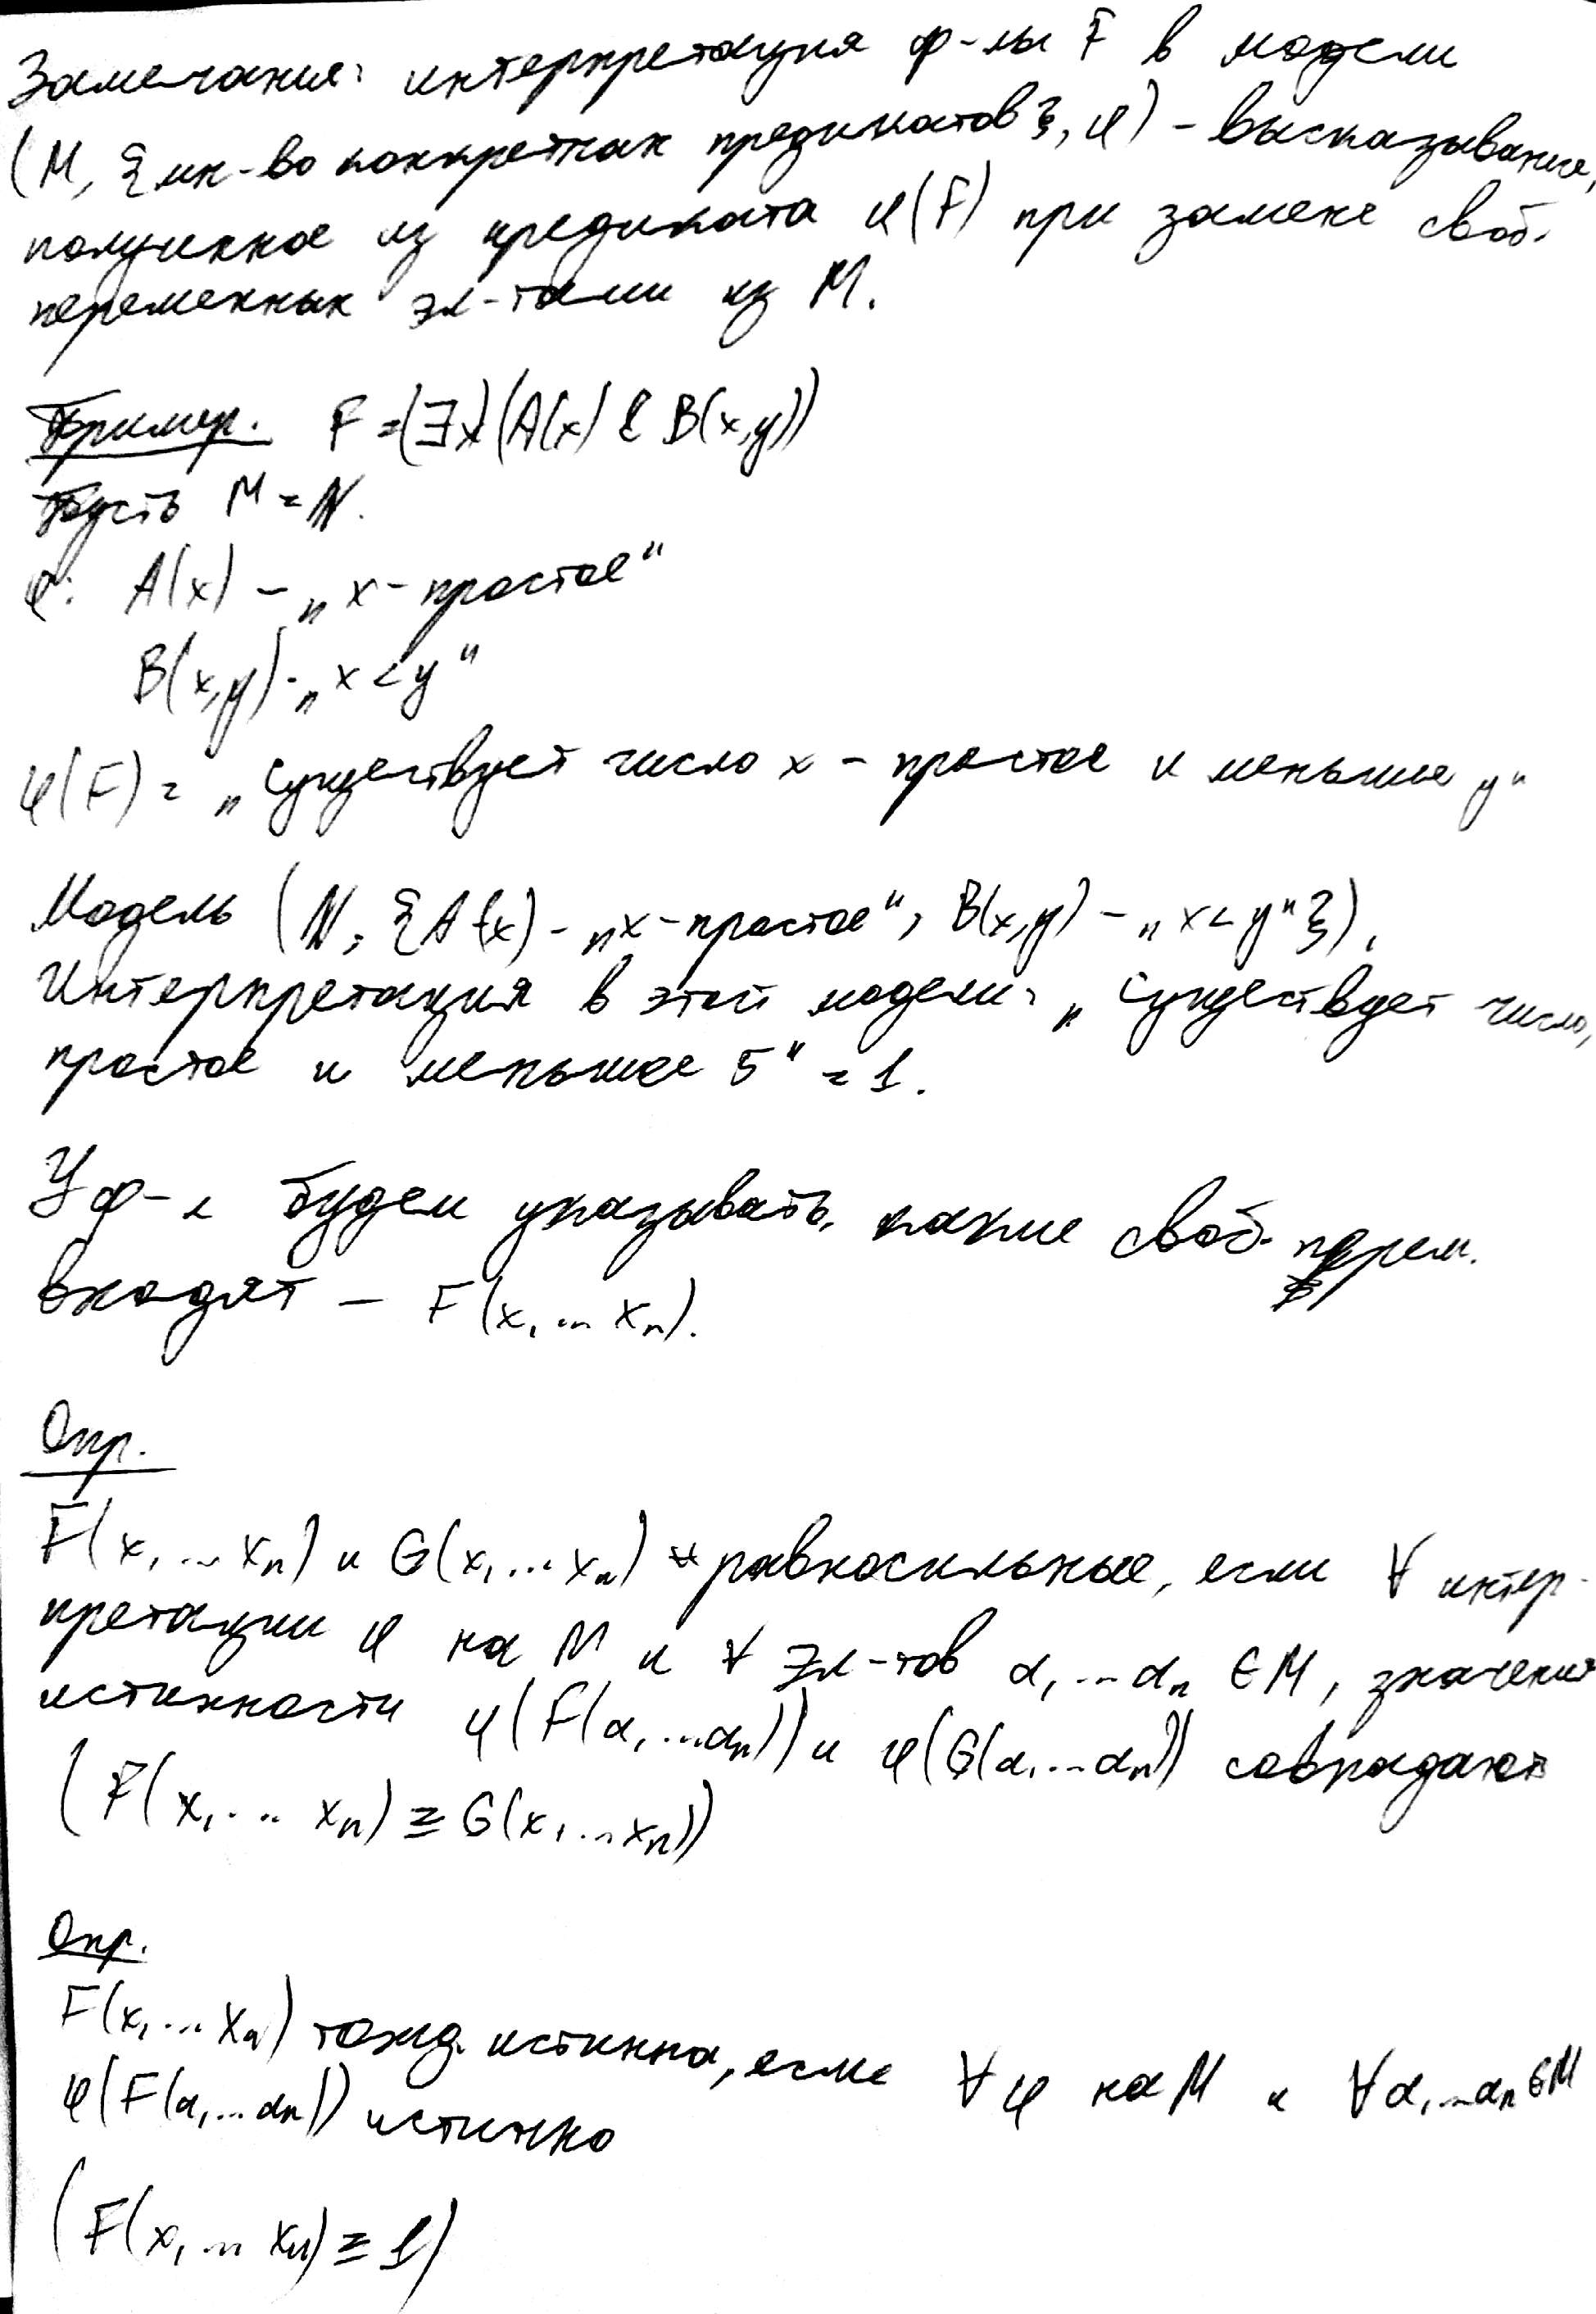 Замечание: интерпретация ф-лы F в модели
(M, {мн-во конкретных предикатов}, φ) – высказывание,
полученное из предиката φ(F) при замене своб.
переменных эл-тами из M.
Пример. F = (∃x)(A(x) & B(x,y))
Пусть M = ℕ.
φ: A(x) – „x – простое“
B(x,y) - „x < y“
φ(F) = „Существует число x – простое и меньше y“
Модель (ℕ, {A(x) – „x – простое“, B(x,y) – „x < y“}),
Интерпретация в этой модели: „Существует число,
простое и меньшее 5“ = 1.
У ф-л будем указывать, какие своб. перем.
входят – F(x₁ ... xₙ).
Опр.
F(x₁ ... xₙ) и G(x₁ ... xₙ) равносильные, если ∀ интер-
претации φ на M и ∀ эл-тов α₁ ... αₙ ∈ M, значения
истинности φ(F(α₁ ... αₙ)) и φ(G(α₁ ... αₙ)) совпадают
(F(x₁ ... xₙ) ≡ G(x₁ ... xₙ))
Опр.
F(x₁ ... xₙ) тожд. истинна, если ∀ φ на M и ∀ α₁ ... αₙ ∈ M
φ(F(α₁ ... αₙ)) истинно
(F(x₁ ... xₙ) ≡ 1)